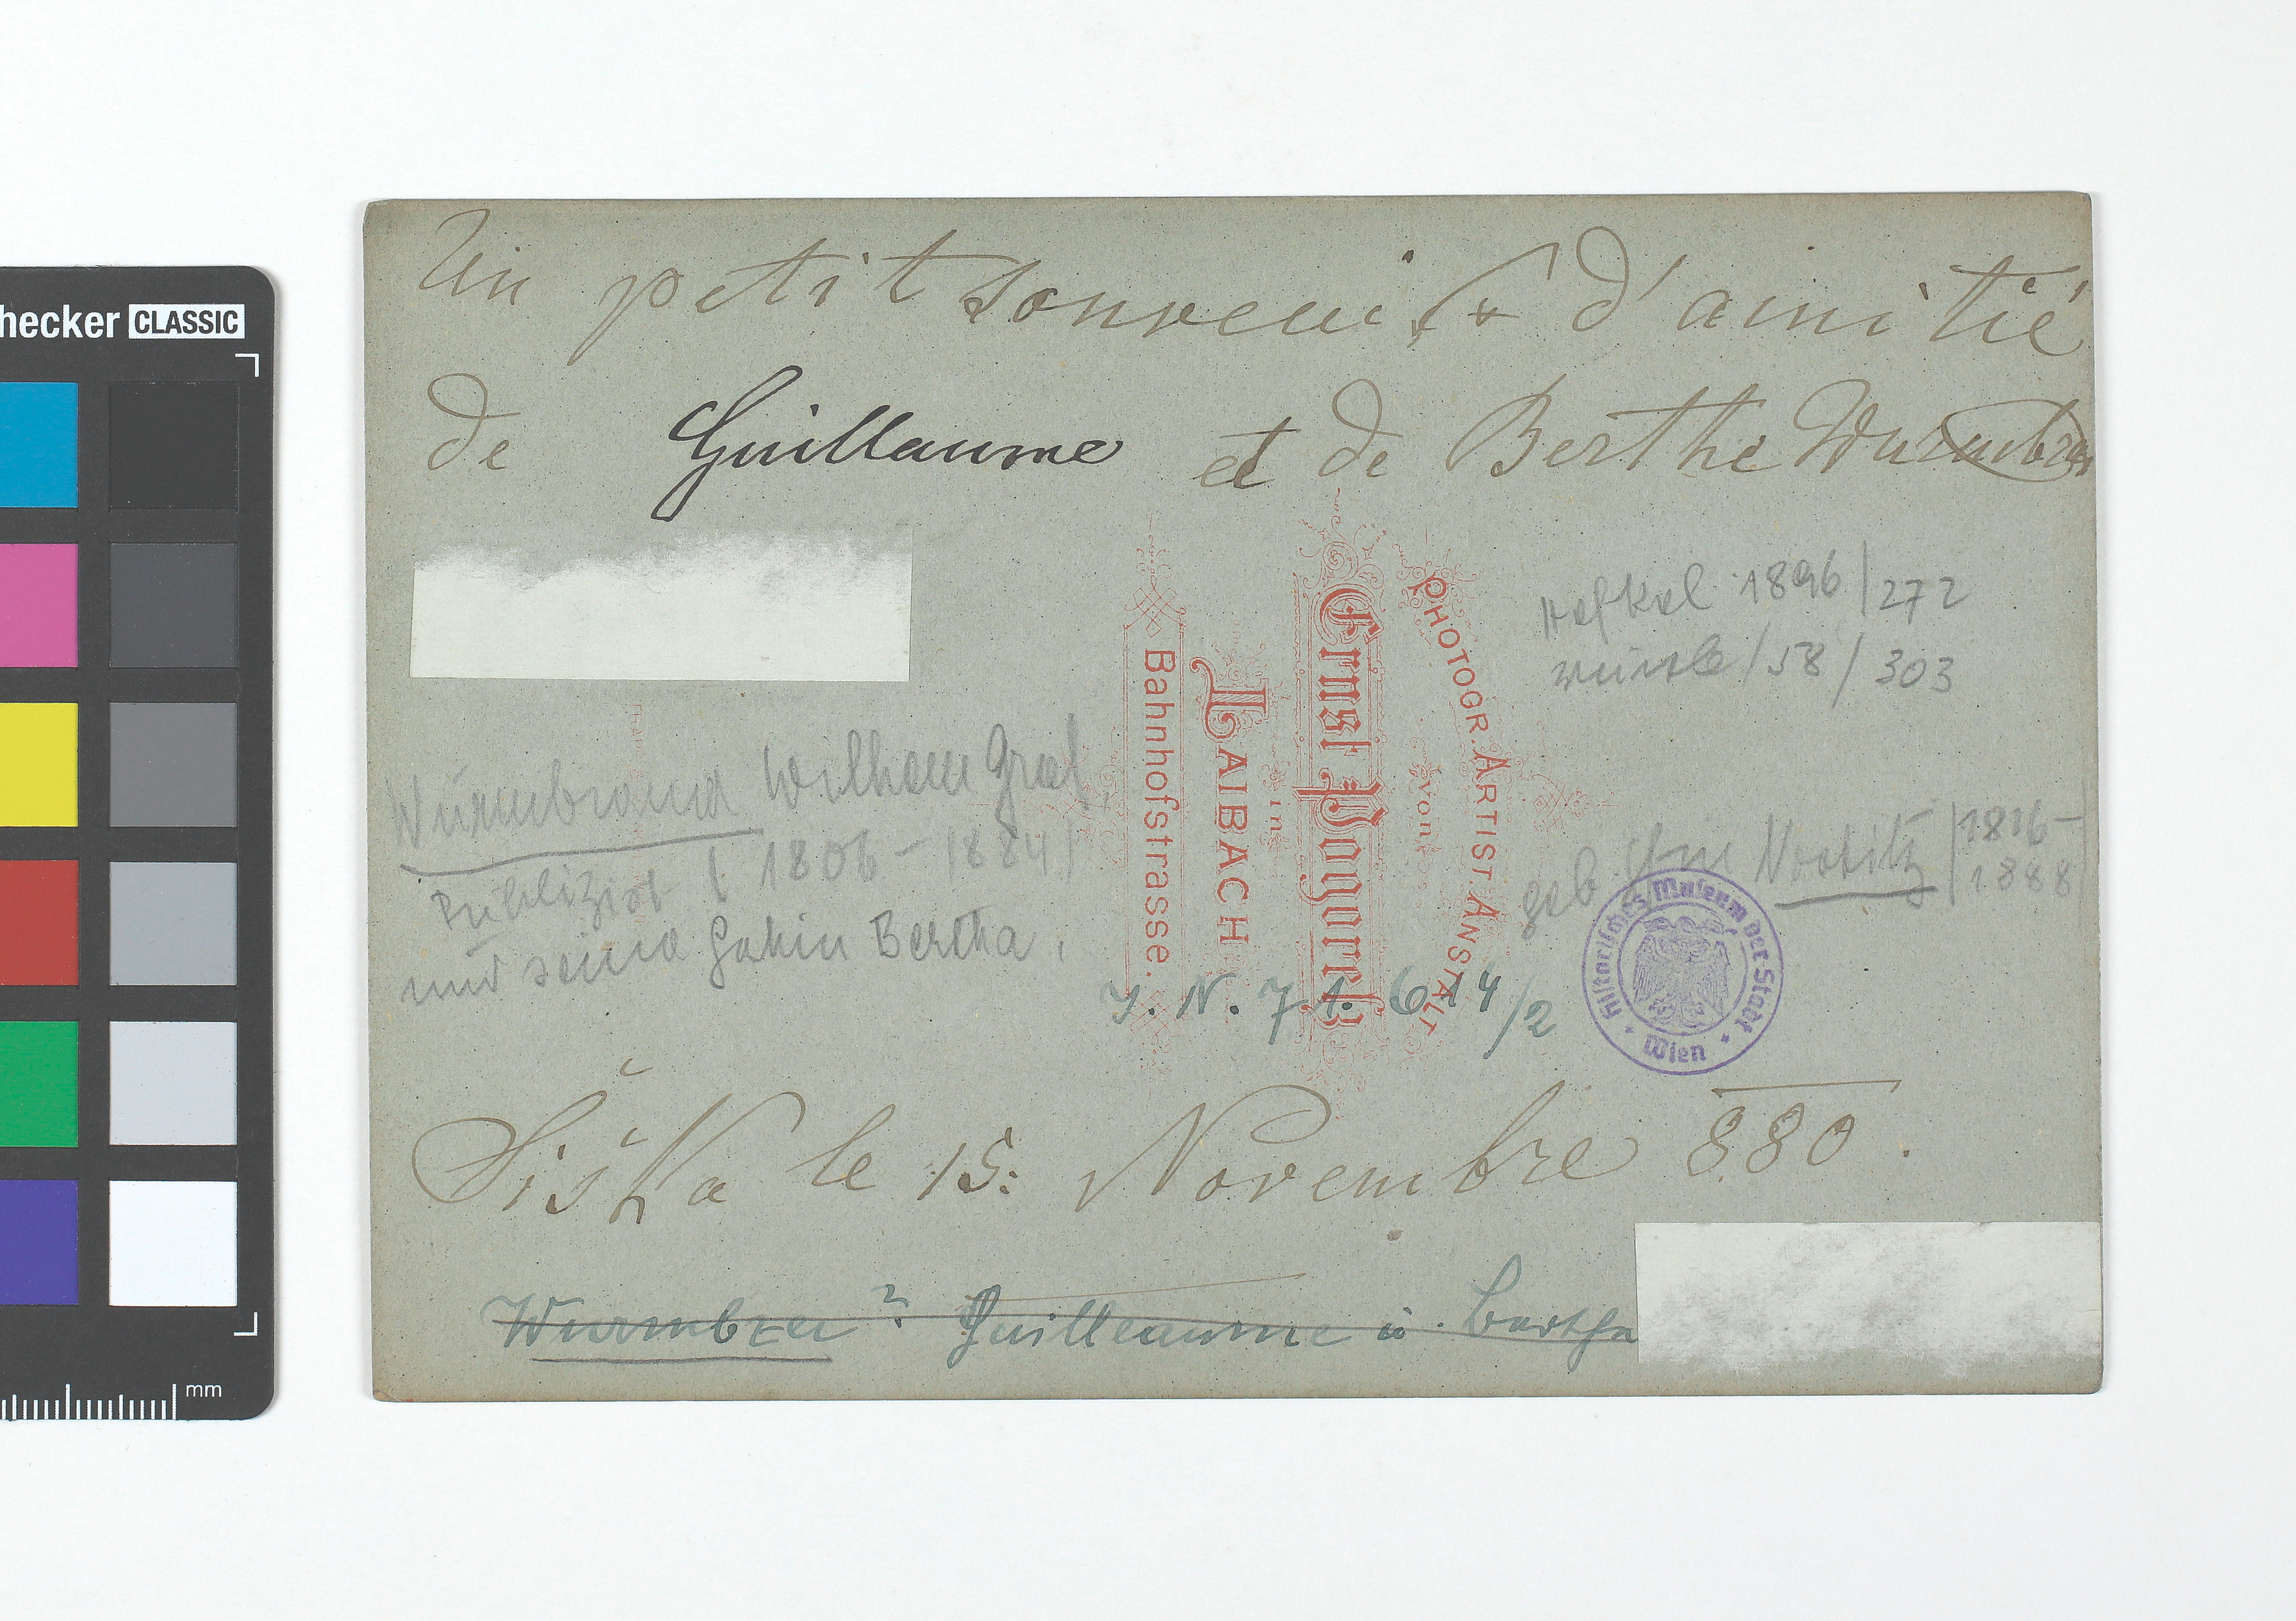 Un petit souvenir d'amitié
de Guillaume et de Berthe Wurmbran
Hofkal 1896/272
wurzb/58/303
PHOTOGR. ARTIST. ANSTALT
von
Ernst Pogorelz
in
LAIBACH
Bahnhofstrasse.
Wurmbrand Wilhelm Graf,
Publizist (1806-1884)
und seine Gattin Bertha,
geb. Nostitz (1816-
1888)
I. N. 71.614/2
Historisches Museum der Stadt Wien
Šiška le 15: Novembre 880.
Wurmbrei? Guilleaume u. Bertha
hecker CLASSIC
mm